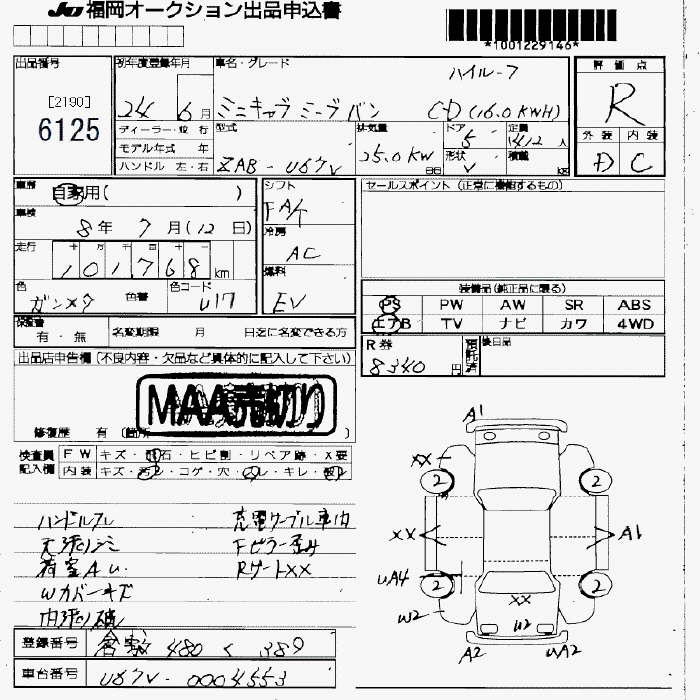 JU 福岡オークション出品申込書
*1001229146*
出品番号
[2190]
6125
初年度登録年月
24 6月
ディーラー・並行
モデル年式 年
ハンドル 左・右
車名・グレード
ハイルーフ
ミニキャブ ミーブ バン CD (16.0 KWH)
型式
ZAB-U67V
排気量
25.0KW
ドア
5
形状
V
定員
人
積載
評価点
R
外装 内装
D C
車歴
自家用( )
車検
8年 7月(12日)
走行
101768km
色
ガンメタ
色替
色コード
U17
シフト
FA/T
冷房
AC
燃料
EV
セールスポイント (正常に機能するもの)
装備品(純正品に限る)
PS PW AW SR ABS
エアB TV ナビ カワ 4WD
保証書
有・無
名変期限 月 日迄に名変できる方
R券
8340円
預託済
後日品
出品店申告欄(不良内容・欠品など具体的に記入して下さい)
MAA売切り
修復歴 有 (箇所
検査員記入欄
FW キズ・飛石・ヒビ割・リペア跡・X要
内装 キズ・汚レ・コゲ・穴・スレ・キレ・破レ
ハンドルスレ 充電ケーブル車内
天張りシミ Fピラー歪み
荷室AU. RゲートXX
Wカバーキズ
内張り破
登録番号
480 く 389
車台番号
U67V-0004553
A1
XX
2
2
XX
A1
UA4
2
2
W2
XX
U2
A2
UA2